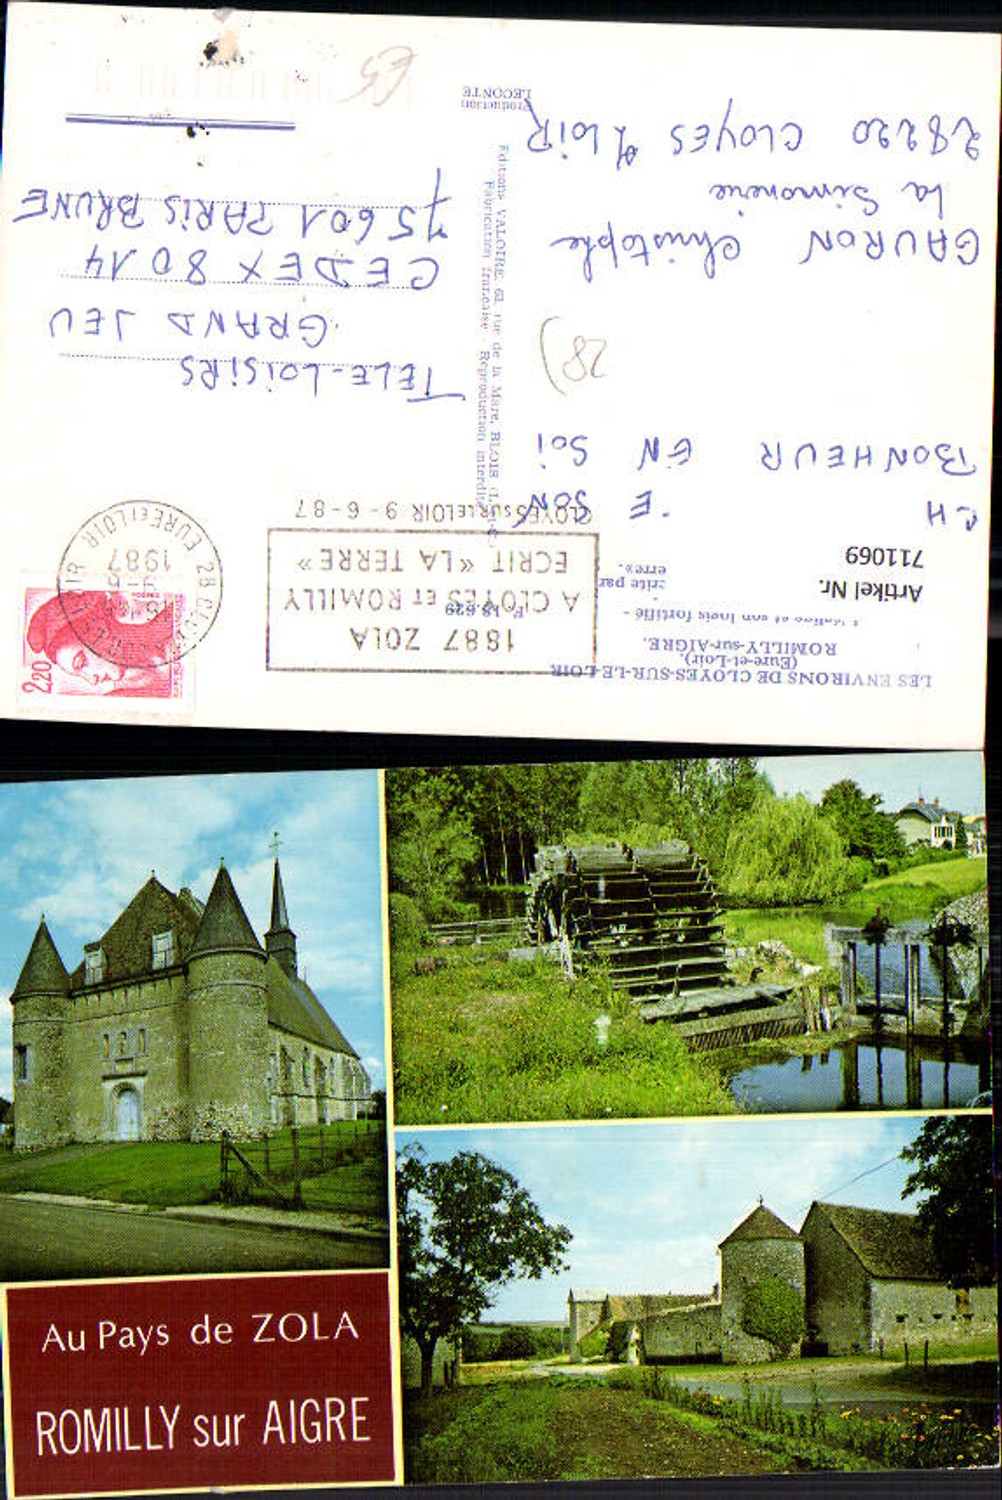 LES ENVIRONS DE CLOYES-SUR-LE-LOIR
(Eure-et-Loir).
ROMILLY-sur-AIGRE.
et son logis fortifié -
crite par
erre».
Artikel Nr.
711069
F 18.629
1887 ZOLA
A CLOYES ET ROMILLY
ECRIT « LA TERRE »
CLOYES SUR LE LOIR 9-6-87
28 CLOYES LOIR
EURE ET LOIR
9-6
1987
2,20
CH E SON
BONHEUR EN SOI
28)
GAURON Christophe
La Simonerie
28220 CLOYES / LOIR
TELE-LOISIRS
GRAND JEU
CEDEX 8014
75601 PARIS BRUNE
Editions VALOIRE, 61, rue de la Mare, BLOIS
Fabrication française - Reproduction interdite
Production
LECONTE
Au Pays de ZOLA
ROMILLY sur AIGRE